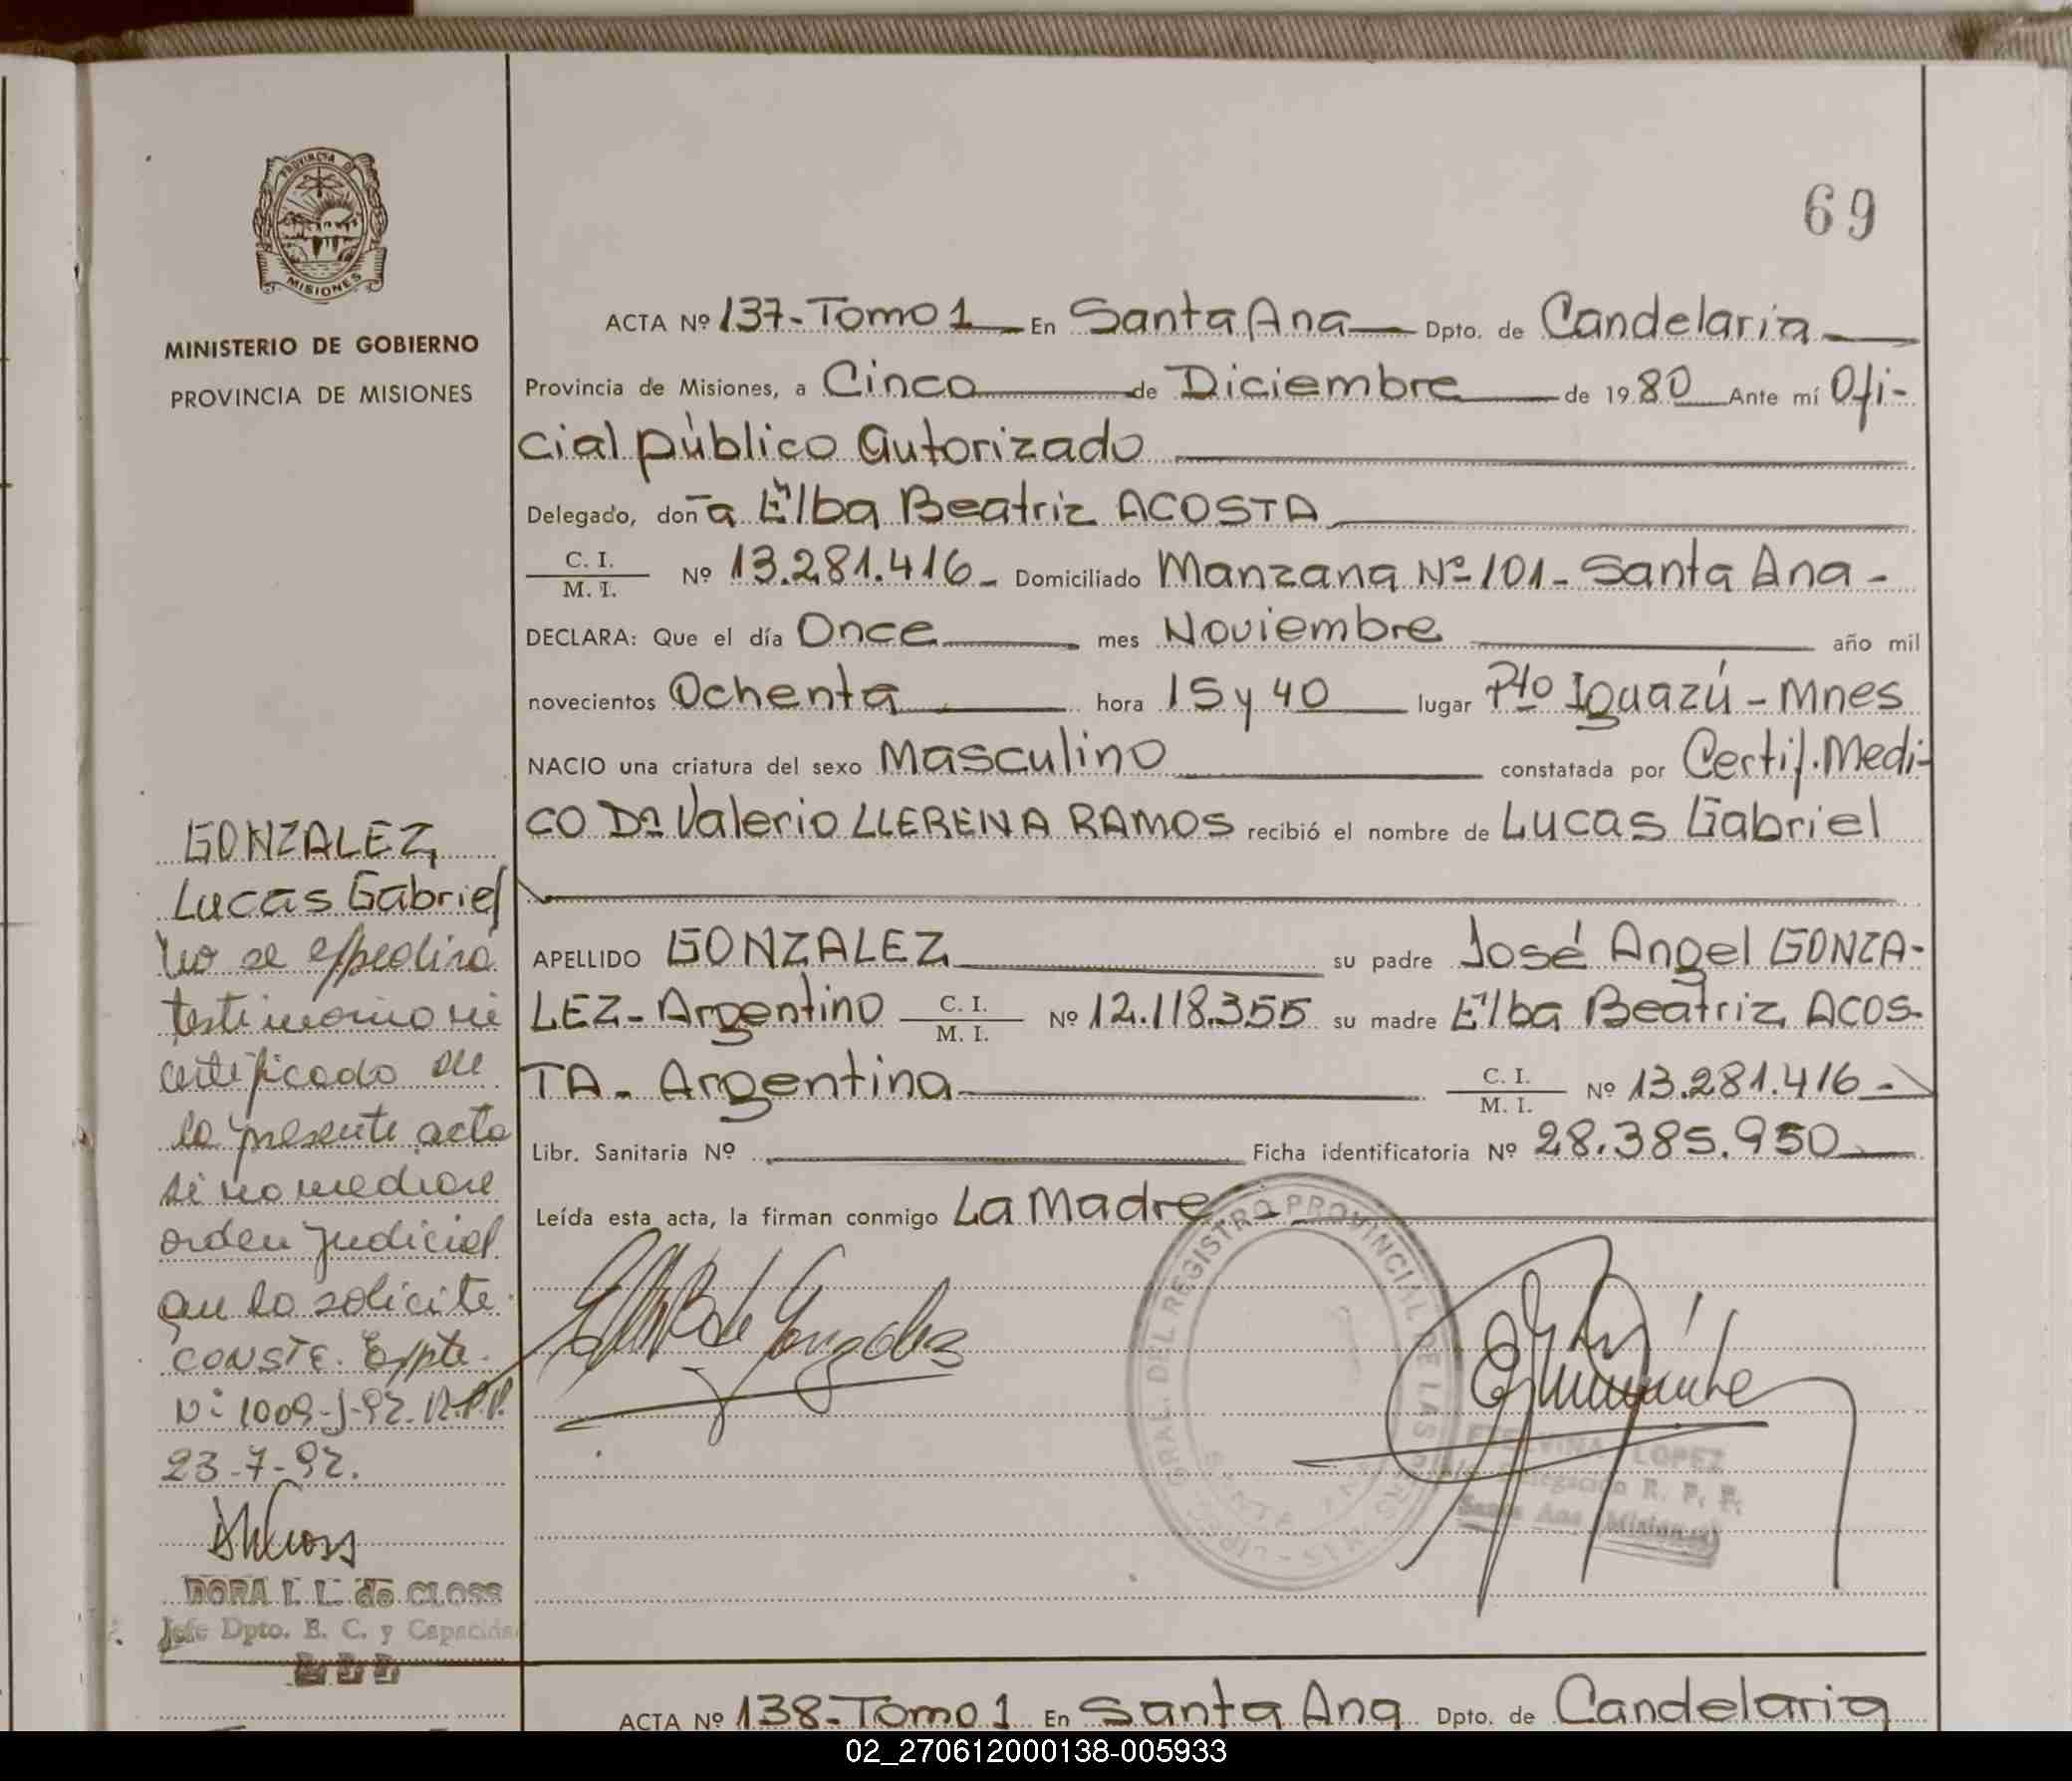 PROVINCIA DE
MISIONES
MINISTERIO DE GOBIERNO
PROVINCIA DE MISIONES
GONZALEZ,
Lucas Gabriel
No se expedirá
testimonio ni
certificado de
la presente acta
si no mediare
orden judicial
que lo solicite
CONSTE. Expte.
Nº 1009-J-92. R.P.P.
23-7-92.
DORA I. L. de CLOSS
Jefe Dpto. E. C. y Capacidad
69
ACTA Nº 137-Tomo 1 En Santa Ana Dpto. de Candelaria
Provincia de Misiones, a Cinco de Diciembre de 1980 Ante mí Ofi-
cial público autorizado
Delegado, doña Elba Beatriz ACOSTA
C. I.
M. I. Nº 13.281.416- Domiciliado Manzana Nº 101- Santa Ana -
DECLARA: Que el día Once mes Noviembre año mil
novecientos Ochenta hora 15 y 40 lugar Pto Iguazú - Mnes
NACIO una criatura del sexo Masculino constatada por Certif. Medi-
co Dr Valerio LLERENA RAMOS recibió el nombre de Lucas Gabriel
APELLIDO GONZALEZ su padre José Angel GONZA-
LEZ- Argentino C. I. M. I. Nº 12.118.355 su madre Elba Beatriz ACOS-
TA - Argentina C. I. M. I. Nº 13.281.416 -
Libr. Sanitaria Nº Ficha identificatoria Nº 28.385.950
Leída esta acta, la firman conmigo La Madre -
Elba B de Gonzalez
GRAL. DEL REGISTRO PROVINCIAL DE LAS PERSONAS
SANTA ANA
ETELVINA LOPEZ
Delegación R. P. P.
Santa Ana (Misiones)
ACTA Nº 138-Tomo 1 En Santa Ana Dpto. de Candelaria
02_270612000138-005933